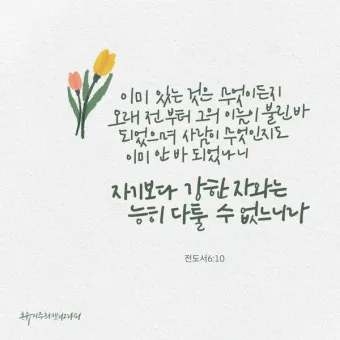 이미 있는 것은 무엇이든지
오래 전부터 그의 이름이 불린 바
되었으며 사람이 무엇인지도
이미 안 바 되었나니
자기보다 강한 자와는
능히 다툴 수 없느니라
전도서6:10